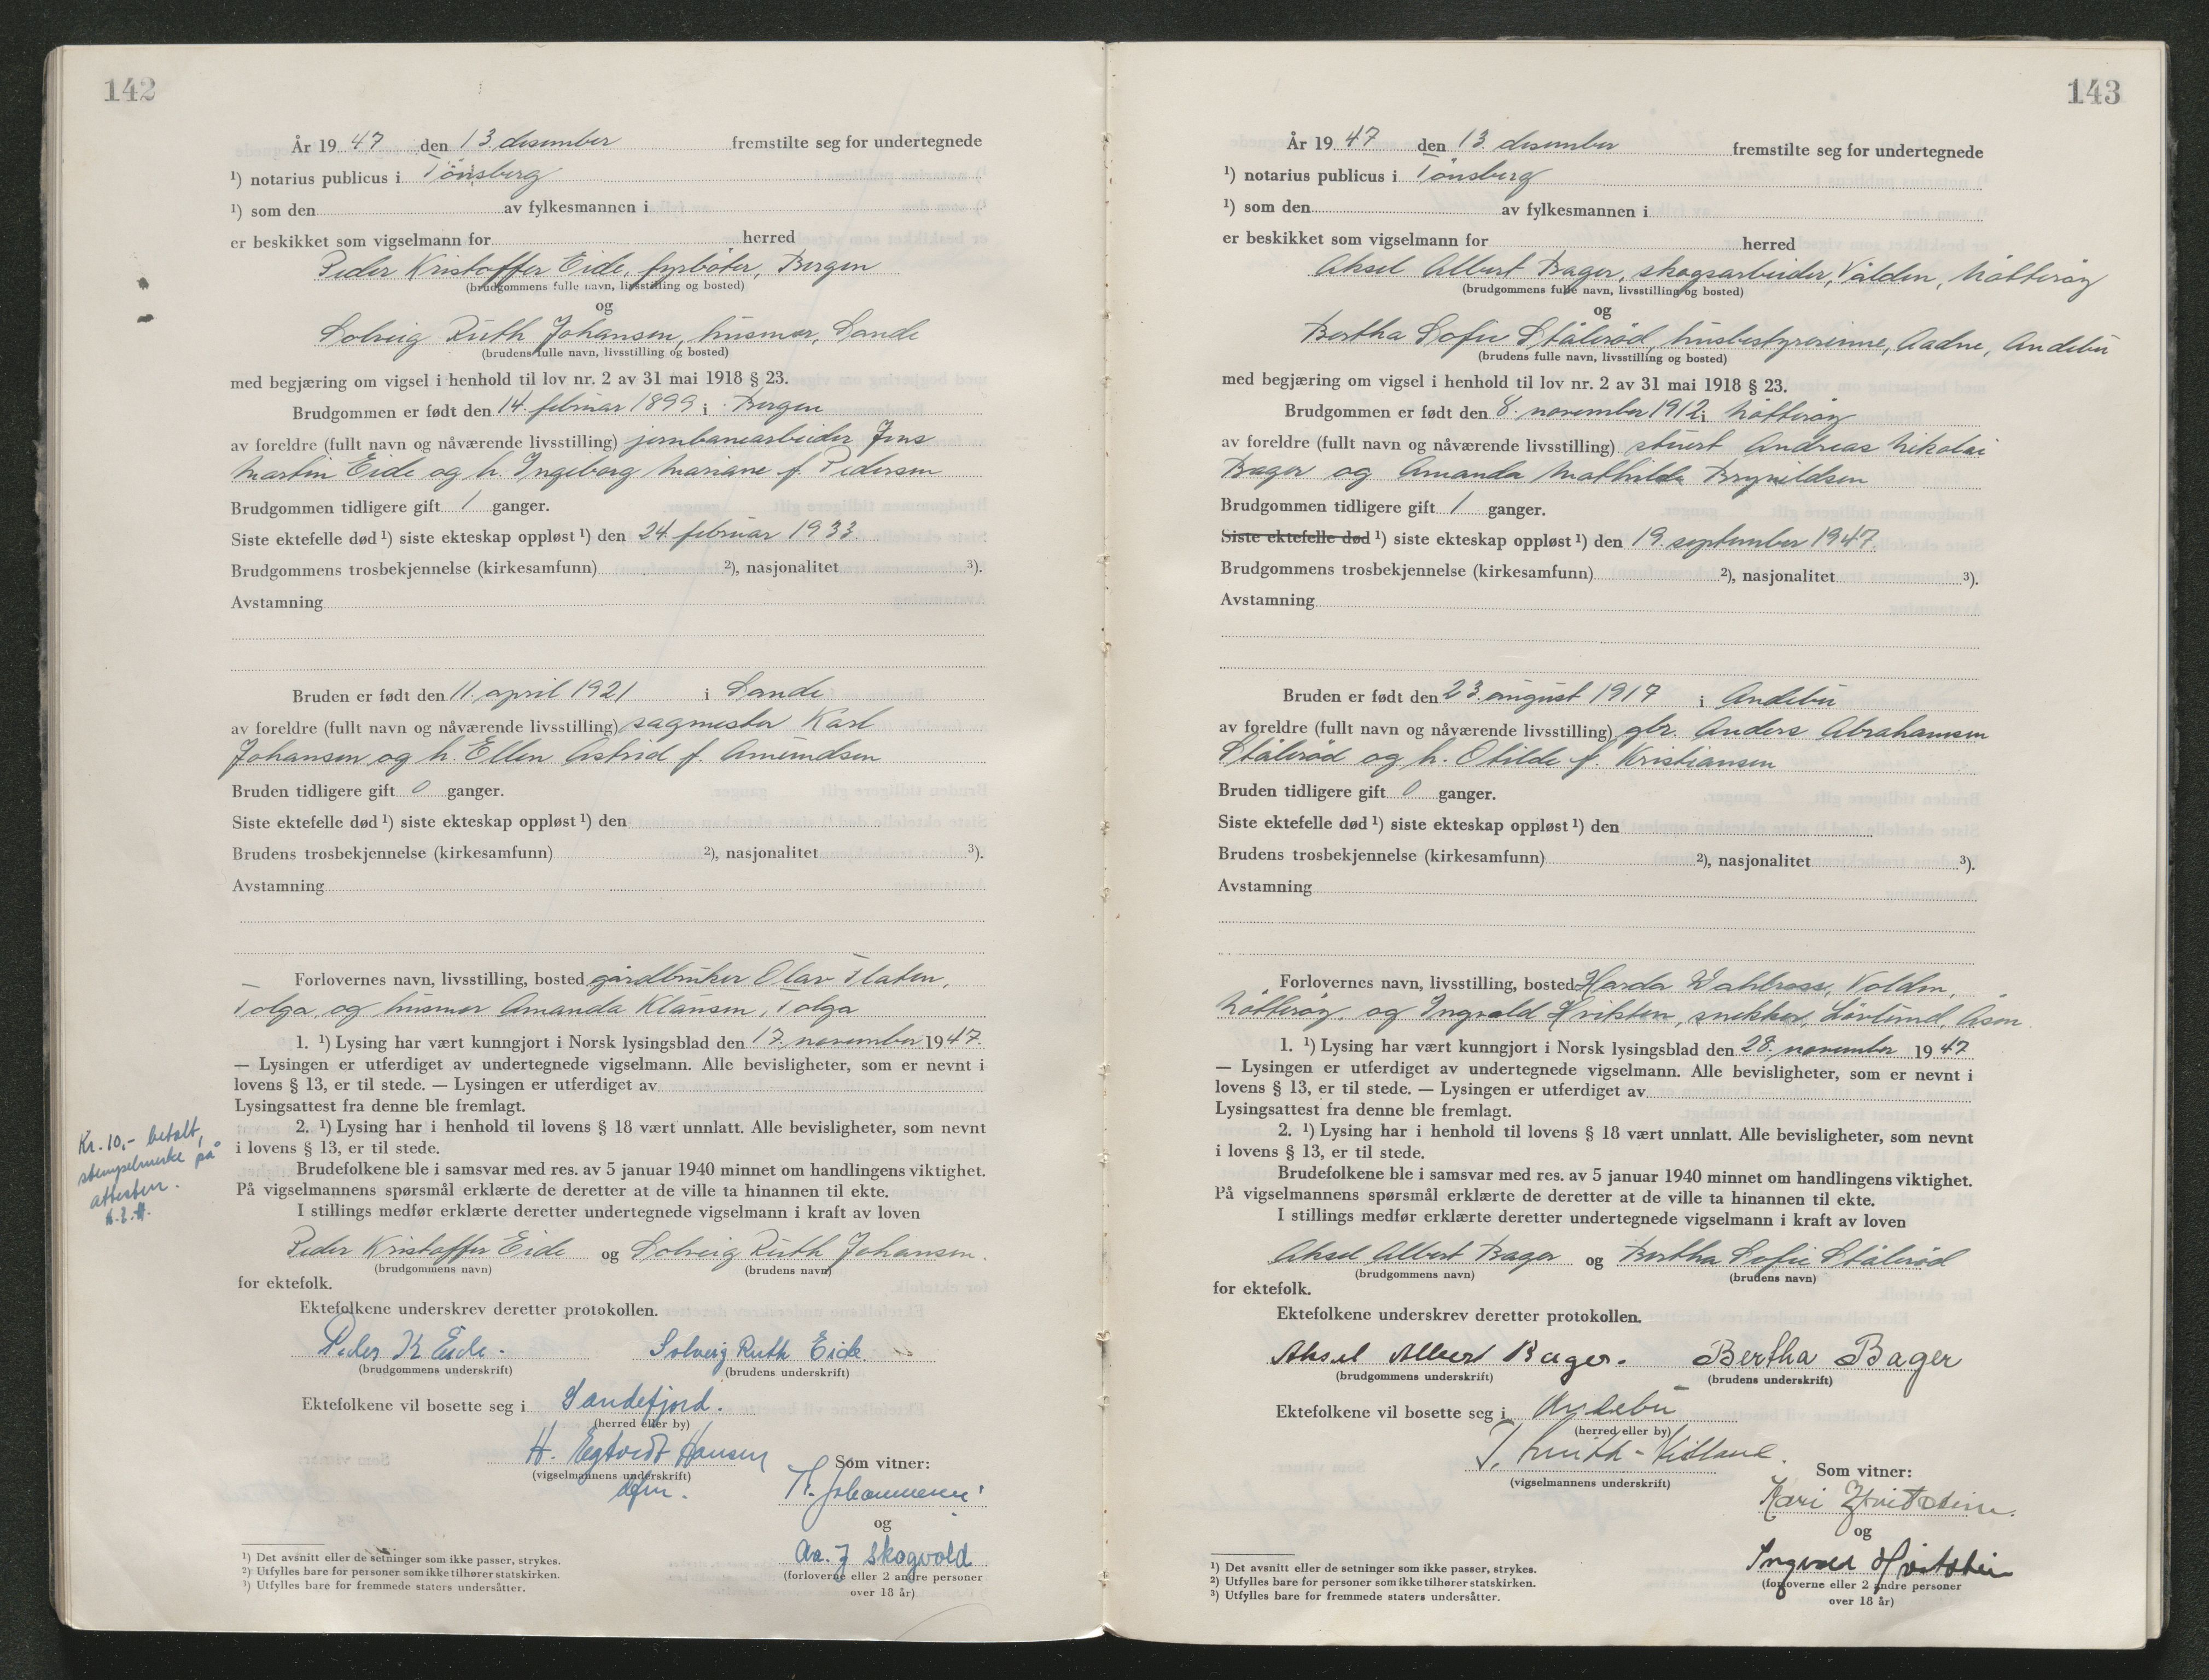 142
År 19 47 den 13. desember fremstilte seg for undertegnede
¹) notarius publicus i Tönsberg
¹) som den av fylkesmannen i
er beskikket som vigselmann for herred
Peder Kristoffer Eide, fyrböter, Bergen
(brudgommens fulle navn, livsstilling og bosted)
og
Solveig Ruth Johansen, husmor, Sande
(brudens fulle navn, livsstilling og bosted)
med begjæring om vigsel i henhold til lov nr. 2 av 31 mai 1918 § 23.
Brudgommen er født den 14. februar 1899 i Bergen
av foreldre (fullt navn og nåværende livsstilling) jernbanearbeider Jens
Martin Eide og h. Ingeborg Mariane f. Pedersen
Brudgommen tidligere gift 1 ganger.
Siste ektefelle død ¹) siste ekteskap oppløst ¹) den 24. februar 1933.
Brudgommens trosbekjennelse (kirkesamfunn) ²), nasjonalitet ³).
Avstamning
Bruden er født den 11. april 1921 i Sande
av foreldre (fullt navn og nåværende livsstilling) sagmester Karl
Johansen og h. Ellen Astrid f. Amundsen
Bruden tidligere gift 0 ganger.
Siste ektefelle død ¹) siste ekteskap oppløst ¹) den
Brudens trosbekjennelse (kirkesamfunn) ²), nasjonalitet ³).
Avstamning
Forlovernes navn, livsstilling, bosted gårdbruker Olav Flaten,
Tolga, og husmor Amanda Klausen, Tolga
1. ¹) Lysing har vært kunngjort i Norsk lysingsblad den 17. november 1947.
— Lysingen er utferdiget av undertegnede vigselmann. Alle bevisligheter, som er nevnt i
lovens § 13, er til stede. — Lysingen er utferdiget av
Lysingsattest fra denne ble fremlagt.
2. ¹) Lysing har i henhold til lovens § 18 vært unnlatt. Alle bevisligheter, som nevnt
i lovens § 13, er til stede.
Kr. 10,- betalt,
stempelmerke på
attesten.
H.E.H.
Brudefolkene ble i samsvar med res. av 5 januar 1940 minnet om handlingens viktighet.
På vigselmannens spørsmål erklærte de deretter at de ville ta hinannen til ekte.
I stillings medfør erklærte deretter undertegnede vigselmann i kraft av loven
Peder Kristoffer Eide og Solveig Ruth Johansen.
(brudgommens navn) (brudens navn)
for ektefolk.
Ektefolkene underskrev deretter protokollen.
Peder K Eide. Solveig Ruth Eide.
(brudgommens underskrift) (brudens underskrift)
Ektefolkene vil bosette seg i Sandefjord.
(herred eller by)
H. Egtvedt Hansen
(vigselmannens underskrift)
Som vitner:
og
Aa. J Skogvold
(forloverne eller 2 andre personer
over 18 år)
¹) Det avsnitt eller de setninger som ikke passer, strykes.
²) Utfylles bare for personer som ikke tilhører statskirken.
³) Utfylles bare for fremmede staters undersåtter.
143
År 19 47 den 13. desember fremstilte seg for undertegnede
¹) notarius publicus i Tönsberg
¹) som den av fylkesmannen i
er beskikket som vigselmann for herred
Aksel Albert Bager, skogsarbeider, Valden, Nötteröy
(brudgommens fulle navn, livsstilling og bosted)
og
Bertha Sofie Stålerød, husbestyrerinne, Aadne, Andebu
(brudens fulle navn, livsstilling og bosted)
med begjæring om vigsel i henhold til lov nr. 2 av 31 mai 1918 § 23.
Brudgommen er født den 8. november 1912 i Nötteröy
av foreldre (fullt navn og nåværende livsstilling) stuert Andreas Nikolai
Bager og Amanda Mathilde Brynildsen
Brudgommen tidligere gift 1 ganger.
Siste ektefelle død ¹) siste ekteskap oppløst ¹) den 19. september 1947.
Brudgommens trosbekjennelse (kirkesamfunn) ²), nasjonalitet ³).
Avstamning
Bruden er født den 23. august 1917 i Andebu
av foreldre (fullt navn og nåværende livsstilling) gbr. Anders Abrahamsen
Stålerød og h. Otilde f. Kristiansen
Bruden tidligere gift 0 ganger.
Siste ektefelle død ¹) siste ekteskap oppløst ¹) den
Brudens trosbekjennelse (kirkesamfunn) ²), nasjonalitet ³).
Avstamning
Forlovernes navn, livsstilling, bosted Harda Wahlross, Volden,
Nötteröy, og Ingvald Hvitsten, snekker, Lövlund, Åsen
1. ¹) Lysing har vært kunngjort i Norsk lysingsblad den 28. november 1947
— Lysingen er utferdiget av undertegnede vigselmann. Alle bevisligheter, som er nevnt i
lovens § 13, er til stede. — Lysingen er utferdiget av
Lysingsattest fra denne ble fremlagt.
2. ¹) Lysing har i henhold til lovens § 18 vært unnlatt. Alle bevisligheter, som nevnt
i lovens § 13, er til stede.
Brudefolkene ble i samsvar med res. av 5 januar 1940 minnet om handlingens viktighet.
På vigselmannens spørsmål erklærte de deretter at de ville ta hinannen til ekte.
I stillings medfør erklærte deretter undertegnede vigselmann i kraft av loven
Aksel Albert Bager og Bertha Sofie Stålerød
(brudgommens navn) (brudens navn)
for ektefolk.
Ektefolkene underskrev deretter protokollen.
Aksel Albert Bager. Bertha Bager
(brudgommens underskrift) (brudens underskrift)
Ektefolkene vil bosette seg i Andebu
(herred eller by)
(vigselmannens underskrift)
Som vitner:
Kari Hvitstein.
og
Ingvald Hvitstein
(forloverne eller 2 andre personer
over 18 år)
¹) Det avsnitt eller de setninger som ikke passer, strykes.
²) Utfylles bare for personer som ikke tilhører statskirken.
³) Utfylles bare for fremmede staters undersåtter.